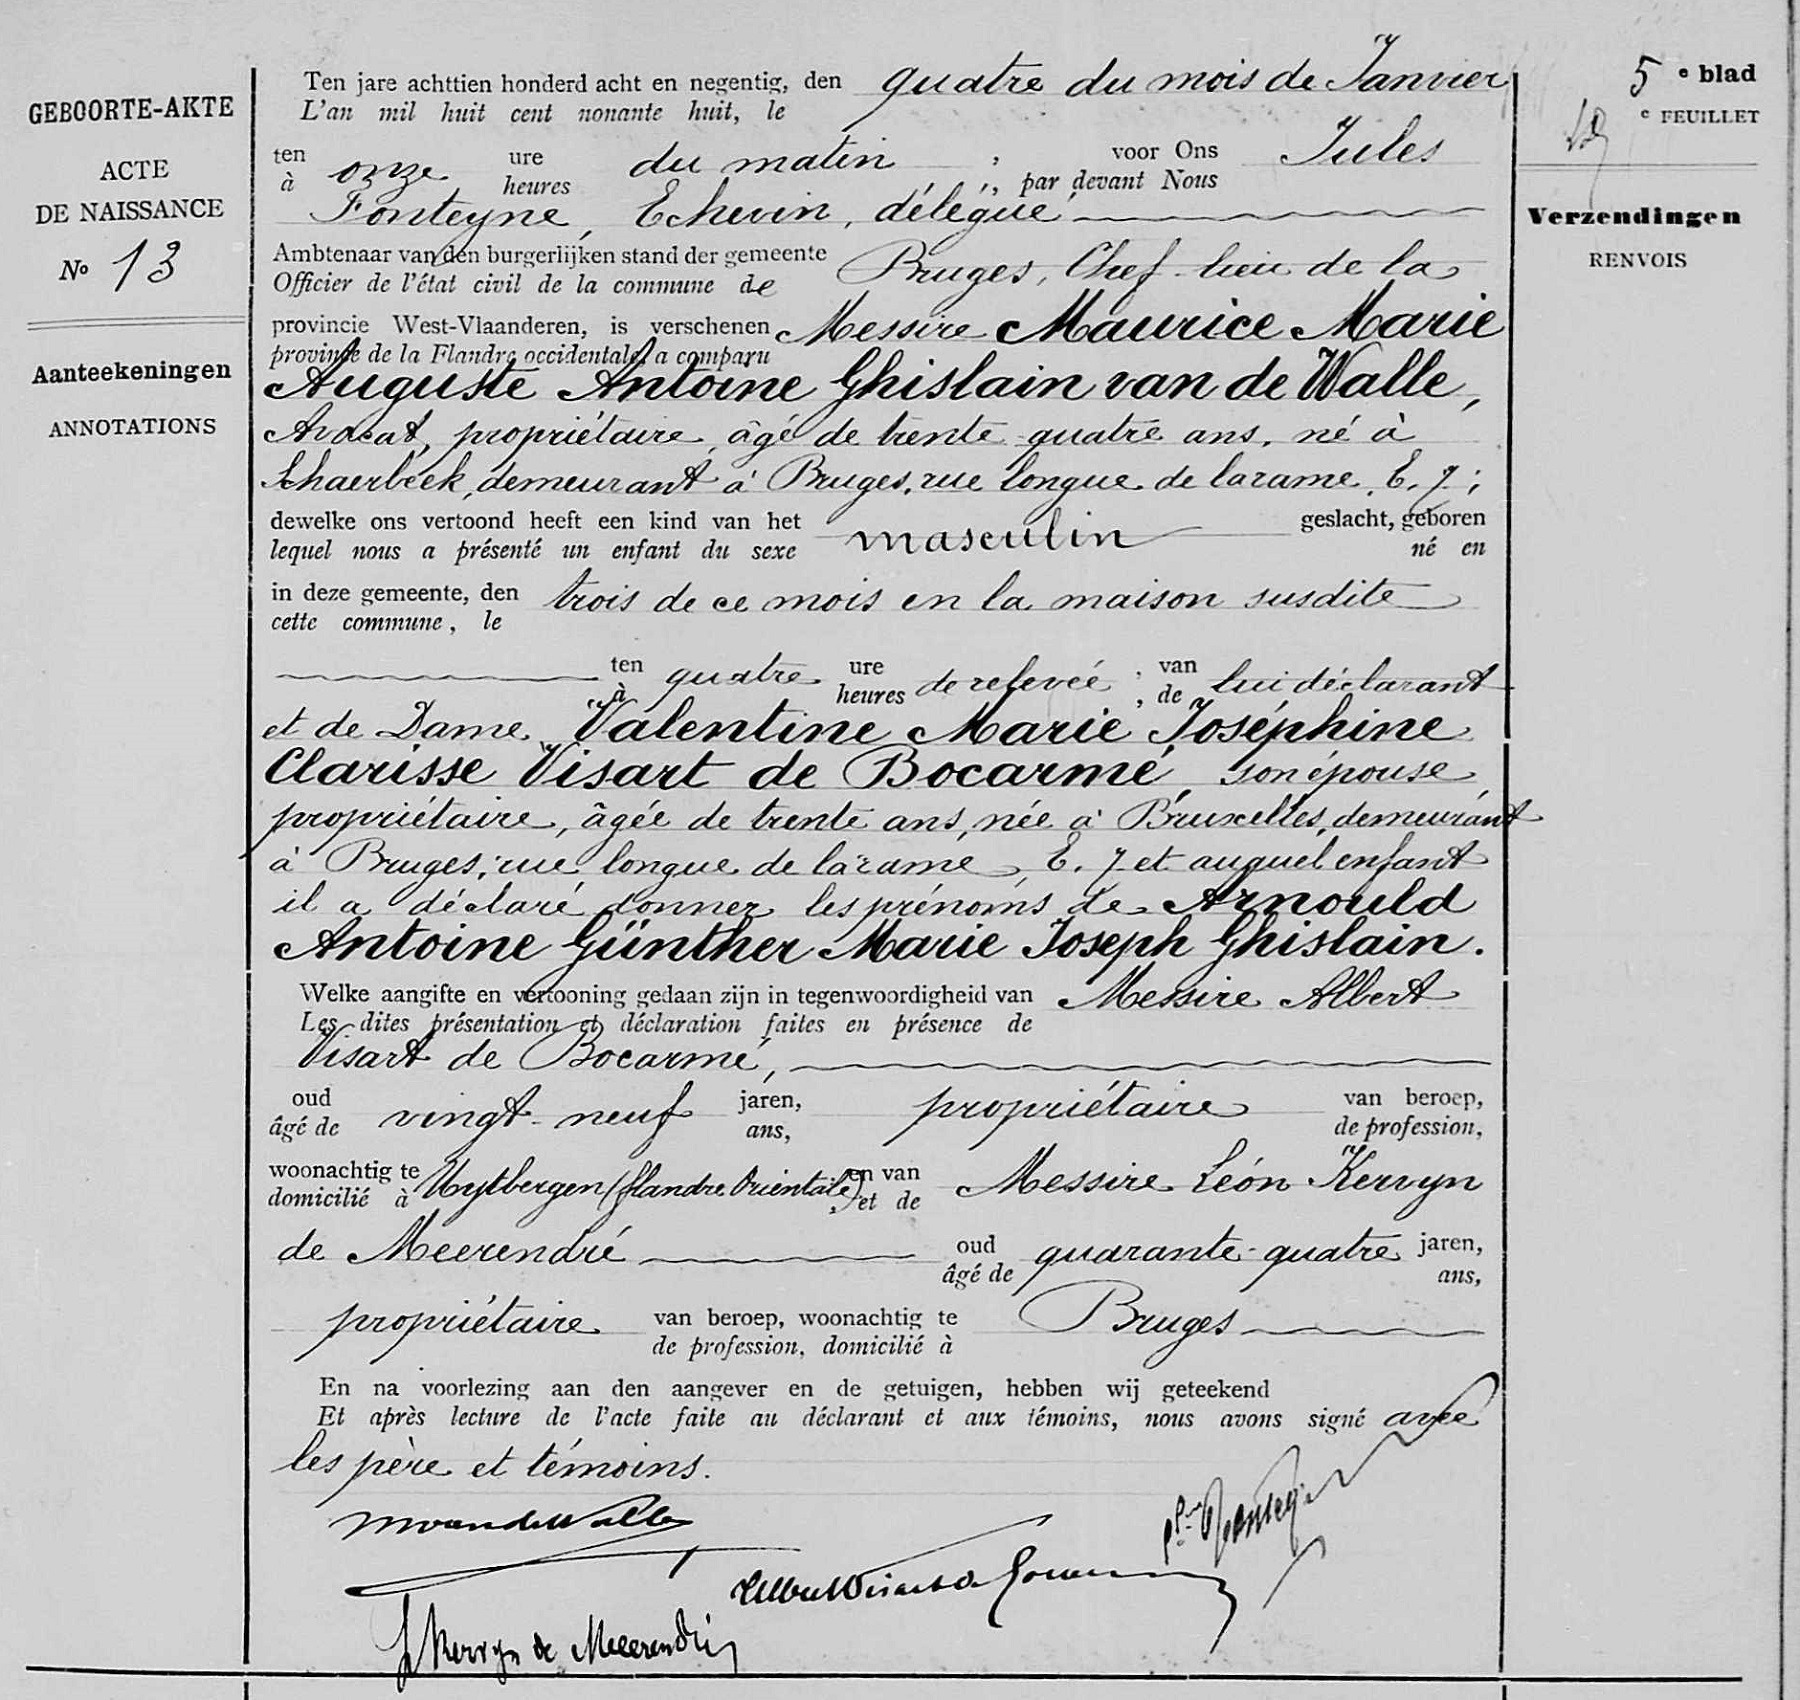 GEBOORTE-AKTE
ACTE
DE NAISSANCE
No 13
Aanteekeningen
ANNOTATIONS
Ten jare achttien honderd acht en negentig, den quatre du mois de Janvier
L'an mil huit cent nonante huit, le
ten onze ure du matin, voor Ons Jules
à heures ; par devant Nous
Fonteyne, Echevin, délégué
Ambtenaar van den burgerlijken stand der gemeente Bruges, Chef-lieu de la
Officier de l'état civil de la commune de
provincie West-Vlaanderen, is verschenen Messire Maurice Marie
province de la Flandre occidentale, a comparu
Auguste Antoine Ghislain van de Walle,
Avocat, propriétaire, âgé de trente-quatre ans, né à
Schaerbeek, demeurant à Bruges, rue longue de la rame, E. 7;
dewelke ons vertoond heeft een kind van het masculin geslacht, geboren
lequel nous a présenté un enfant du sexe né en
in deze gemeente, den trois de ce mois en la maison susdite
cette commune, le
ten quatre ure de relevée ; van lui déclarant
à heures , de
et de Dame Valentine Marie Joséphine
Clarisse Visart de Bocarmé, son épouse,
propriétaire, âgée de trente ans, née à Bruxelles, demeurant
à Bruges, rue longue de la rame, E. 7 et auquel enfant
il a déclaré donner les prénoms de Arnould
Antoine Günther Marie Joseph Ghislain.
Welke aangifte en vertooning gedaan zijn in tegenwoordigheid van Messire Albert
Les dites présentation et déclaration faites en présence de
Visart de Bocarmé,
oud vingt-neuf jaren, propriétaire van beroep,
âgé de ans, de profession,
woonachtig te Uytbergen (flandre Orientale) en van Messire Léon Kervyn
domicilié à , et de
de Meerendré oud quarante-quatre jaren,
âgé de ans,
propriétaire van beroep, woonachtig te Bruges
de profession, domicilié à
En na voorlezing aan den aangever en de getuigen, hebben wij geteekend
Et après lecture de l'acte faite au déclarant et aux témoins, nous avons signé avec
les père et témoins.
MvandeWalle
Albert Visart de Bocarmé
L Kervyn de Meerendré
5 e blad
e FEUILLET
Verzendingen
RENVOIS